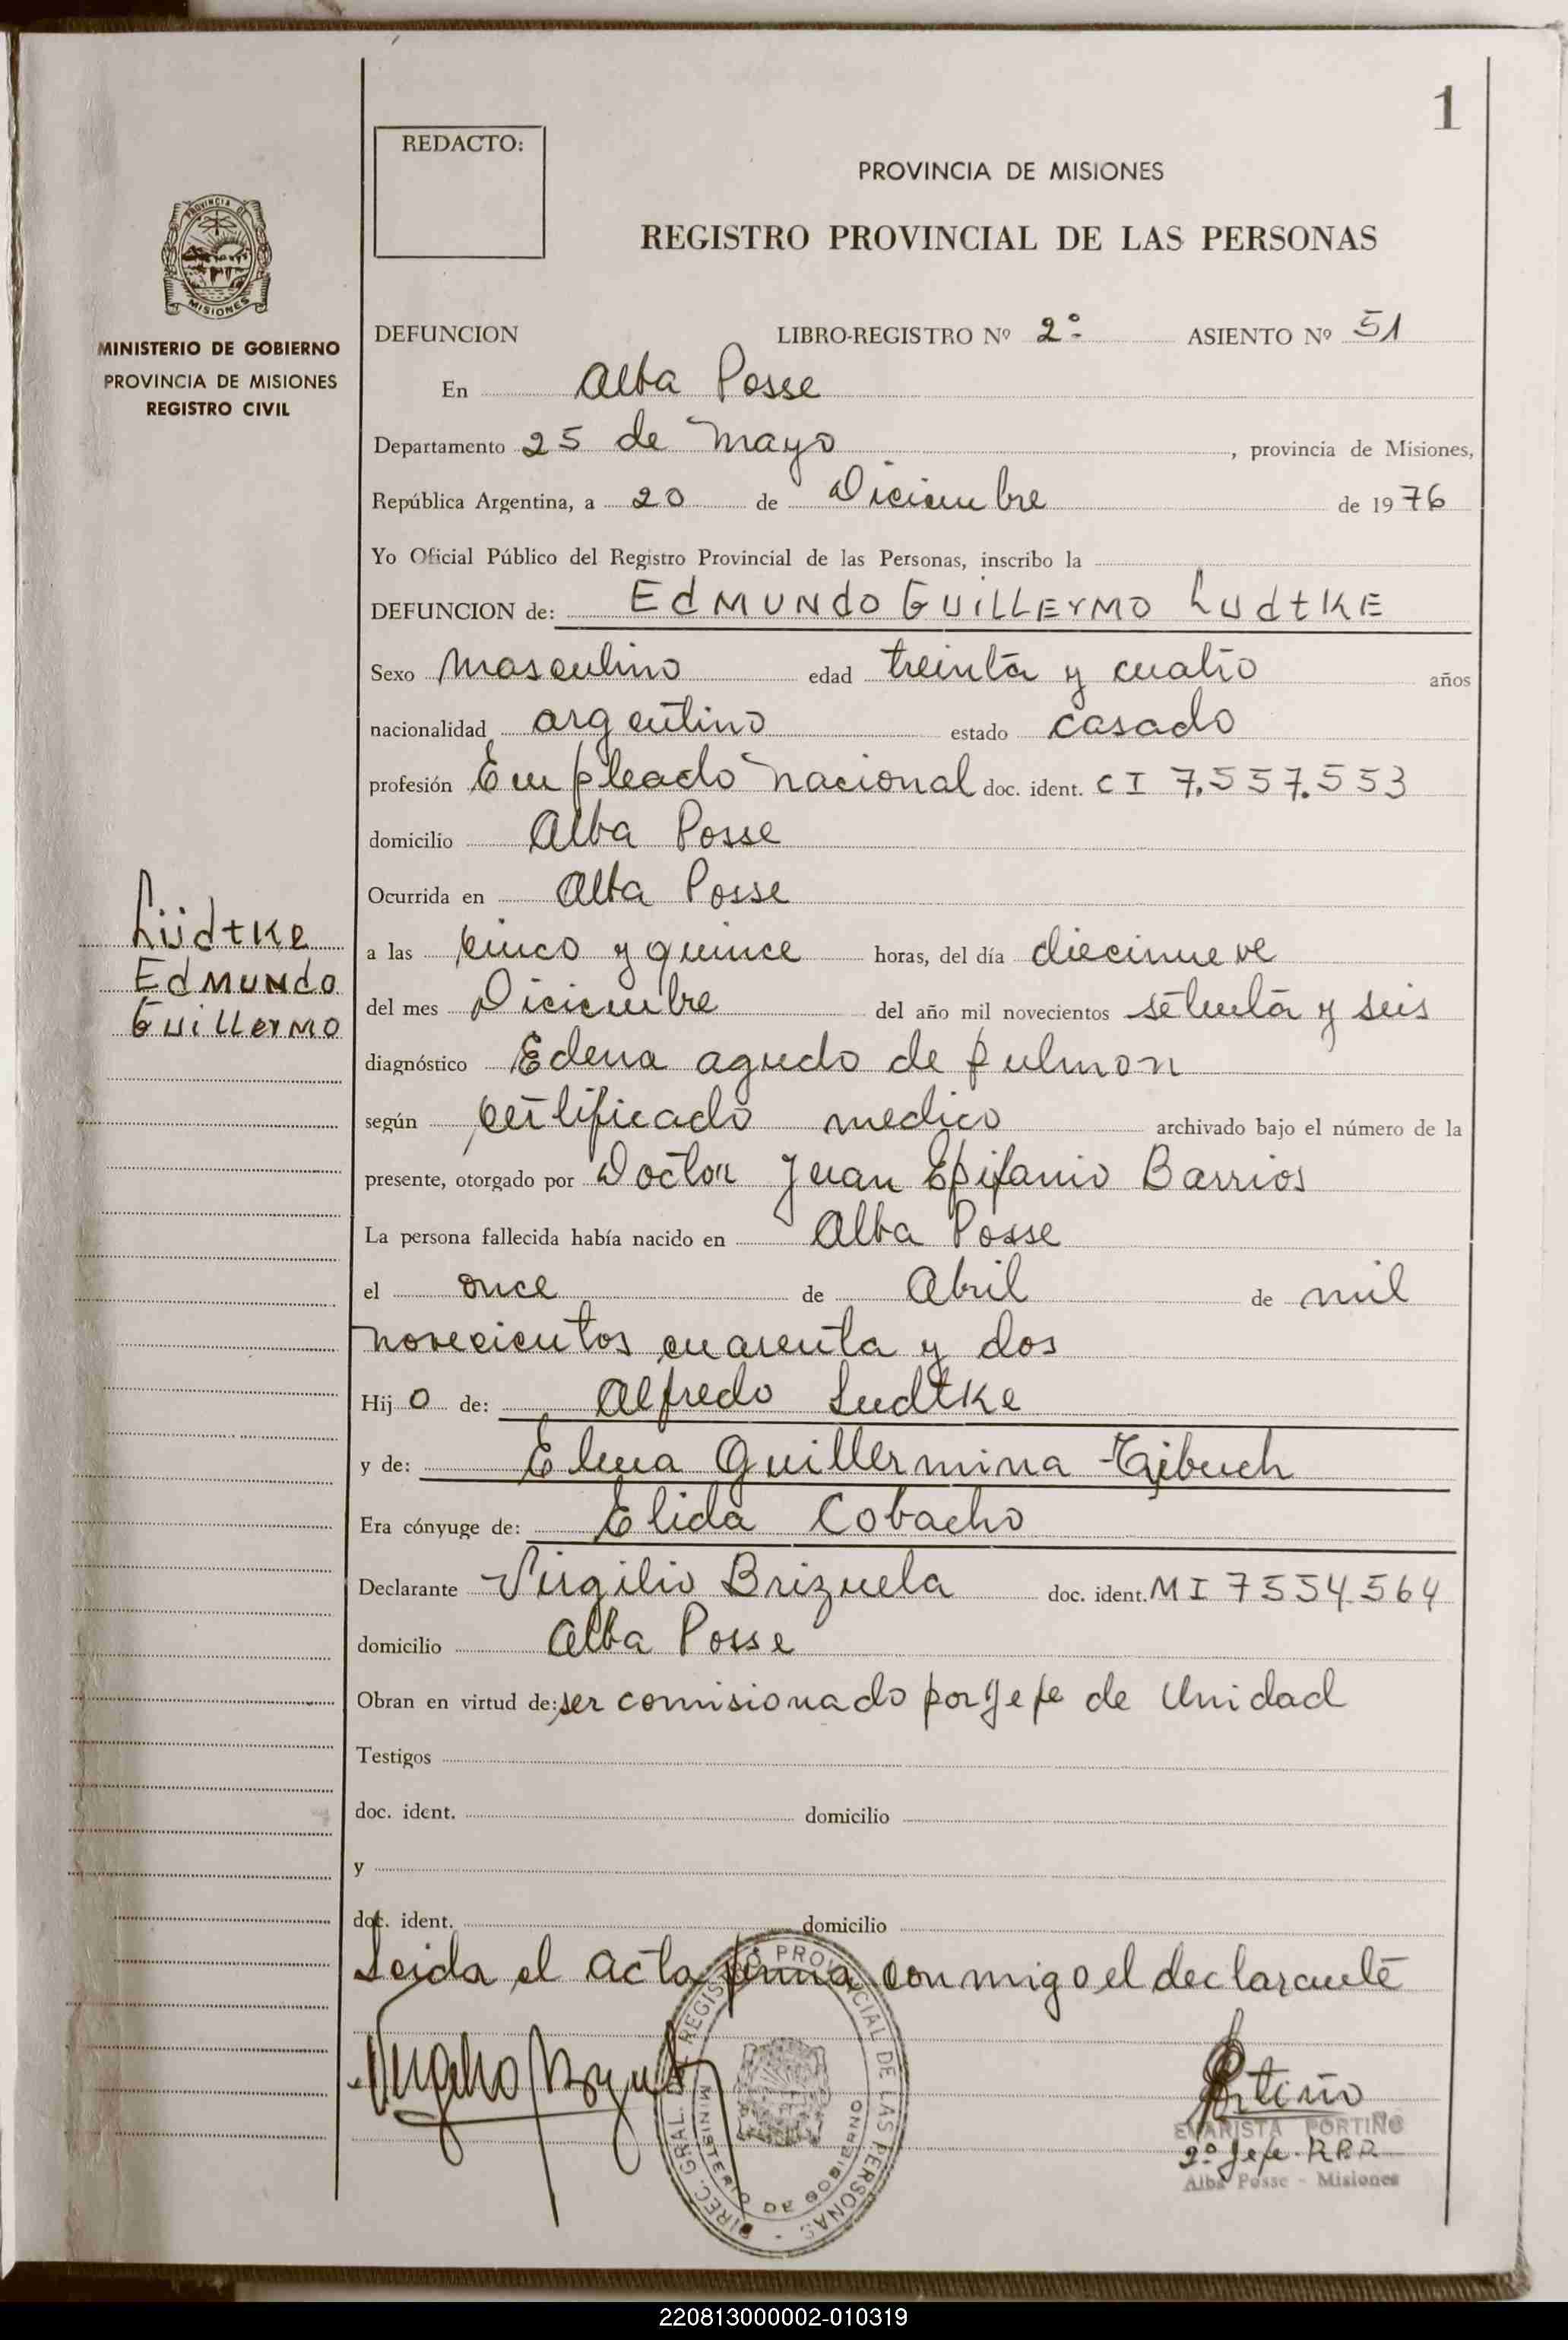 1
REDACTO:
PROVINCIA DE MISIONES
REGISTRO PROVINCIAL DE LAS PERSONAS
PROVINCIA DE
MISIONES
MINISTERIO DE GOBIERNO
PROVINCIA DE MISIONES
REGISTRO CIVIL
DEFUNCION LIBRO-REGISTRO Nº 2º ASIENTO Nº 51
En Alba Posse
Departamento 25 de Mayo, provincia de Misiones,
República Argentina, a 20 de Diciembre de 1976
Yo Oficial Público del Registro Provincial de las Personas, inscribo la
DEFUNCION de: EdMUNdO GUILLERMO LUdtKE
Sexo Masculino edad treinta y cuatro años
nacionalidad argentino estado casado
profesión Empleado Nacional doc. ident. CI 7.557.553
domicilio Alba Posse
Ocurrida en Alba Posse
Lüdtke
EdMUNdo
GuiLLerMO
a las cinco y quince horas, del día diecinueve
del mes Diciembre del año mil novecientos setenta y seis
diagnóstico Edema agudo de pulmon
según certificado medico archivado bajo el número de la
presente, otorgado por Doctor Juan Epifanio Barrios
La persona fallecida había nacido en Alba Posse
el once de Abril de mil
novecientos cuarenta y dos
Hijo de: Alfredo Ludtke
y de: Elena Guillermina
Era cónyuge de: Elida Cobacho
Declarante Virgilio Brizuela doc. ident. MI 7554564
domicilio Alba Posse
Obran en virtud de: ser comisionado por Jefe de Unidad
Testigos
doc. ident. domicilio
y
doc. ident. domicilio
Leida el acta firma conmigo el declarante
DIREC. GRAL. REGISTRO PROVINCIAL DE LAS PERSONAS
MINISTERIO DE GOBIERNO
EVARISTA PORTIÑO
2º Jefe R.P.P.
Alba Posse - Misiones
220813000002-010319